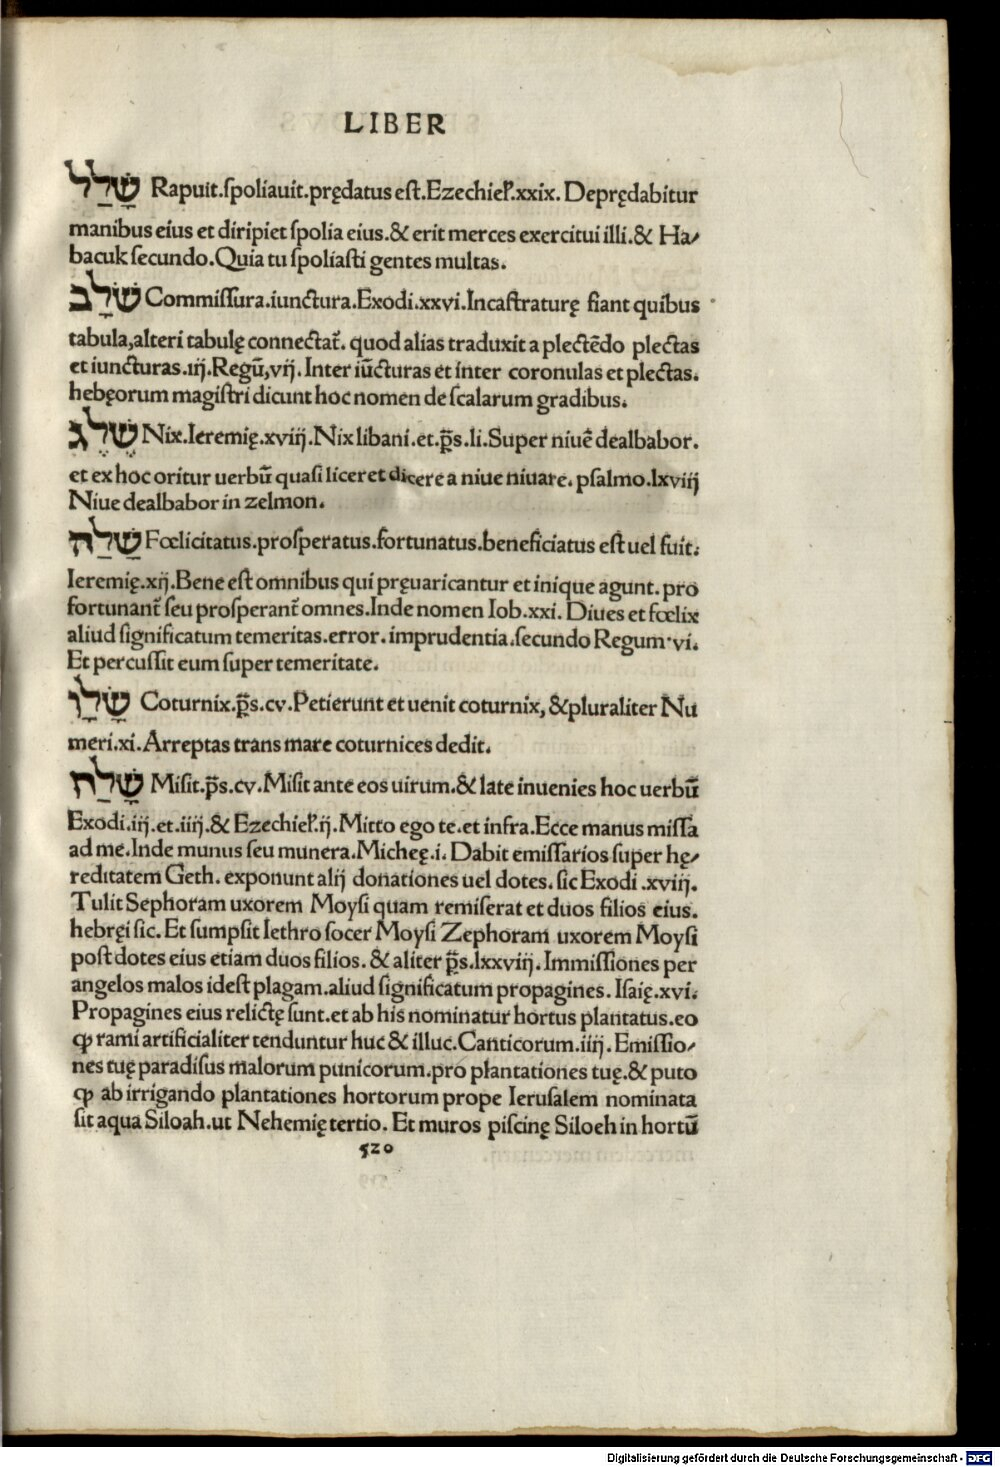 LIBER
שָׁלַל Rapuit.ſpoliauit.prędatus eſt.Ezechiel̕.xxix. Deprędabitur
manibus eius et diripiet ſpolia eius.& erit merces exercitui illi.& Ha⸗
bacuk ſecundo.Quia tu ſpoliaſti gentes multas.
שָׁלַב Commiſſura.iunctura.Exodi.xxvi.Incaſtraturę fiant quibus
tabula,alteri tabulę connectat᷑. quod alias traduxit a plectēdo plectas
et iuncturas.iij.Regū,vij.Inter iūcturas et inter coronulas et plectas.
hebęorum magiſtri dicunt hoc nomen de ſcalarum gradibus.
שֶׁלֶג Nix.Ieremię.xviij.Nix libani.et.p̄s.li.Super niuē dealbabor.
et ex hoc oritur uerbū quaſi liceret dicere a niue niuare. pſalmo.lxviij
Niue dealbabor in zelmon.
שָׁלַה Fœlicitatus.proſperatus.fortunatus.beneficiatus eſt uel fuit.
Ieremię.xij.Bene eſt omnibus qui pręuaricantur et inique agunt. pro
fortunant᷑ ſeu proſperant᷑ omnes.Inde nomen Iob.xxi. Diues et fœlix
aliud ſignificatum temeritas.error. imprudentia.ſecundo Regum.vi.
Et percuſſit eum ſuper temeritate.
שָׂלַו Coturnix.p̄s.cv.Petierunt et uenit coturnix, &pluraliter Nu
meri.xi.Arreptas trans mare coturnices dedit.
שָׁלַח Miſit.p̄s.cv.Miſit ante eos uirum.& late inuenies hoc uerbū
Exodi.iij.et.iiij.& Ezechiel̕.ij.Mitto ego te.et infra.Ecce manus miſſa
ad me.Inde munus ſeu munera.Michęę.i. Dabit emiſſarios ſuper hę⸗
reditatem Geth. exponunt alij donationes uel dotes. ſic Exodi .xviij.
Tulit Sephoram uxorem Moyſi quam remiſerat et duos filios eius.
hebręi ſic. Et ſumpſit Iethro ſocer Moyſi Zephoram uxorem Moyſi
poſt dotes eius etiam duos filios. & aliter p̄s.lxxvij. Immiſſiones per
angelos malos ideſt plagam.aliud ſignificatum propagines. Iſaię.xvi.
Propagines eius relictę ſunt.et ab his nominatur hortus plantatus.eo
ꝙ rami artificialiter tenduntur huc & illuc.Canticorum.iiij. Emiſſio⸗
nes tuę paradiſus malorum punicorum.pro plantationes tuę.& puto
ꝙ ab irrigando plantationes hortorum prope Ieruſalem nominata
ſit aqua Siloah.ut Nehemię tertio. Et muros piſcinę Siloeh in hortū
520
Digitalisierung gefördert durch die Deutsche Forschungsgemeinschaft - DFG